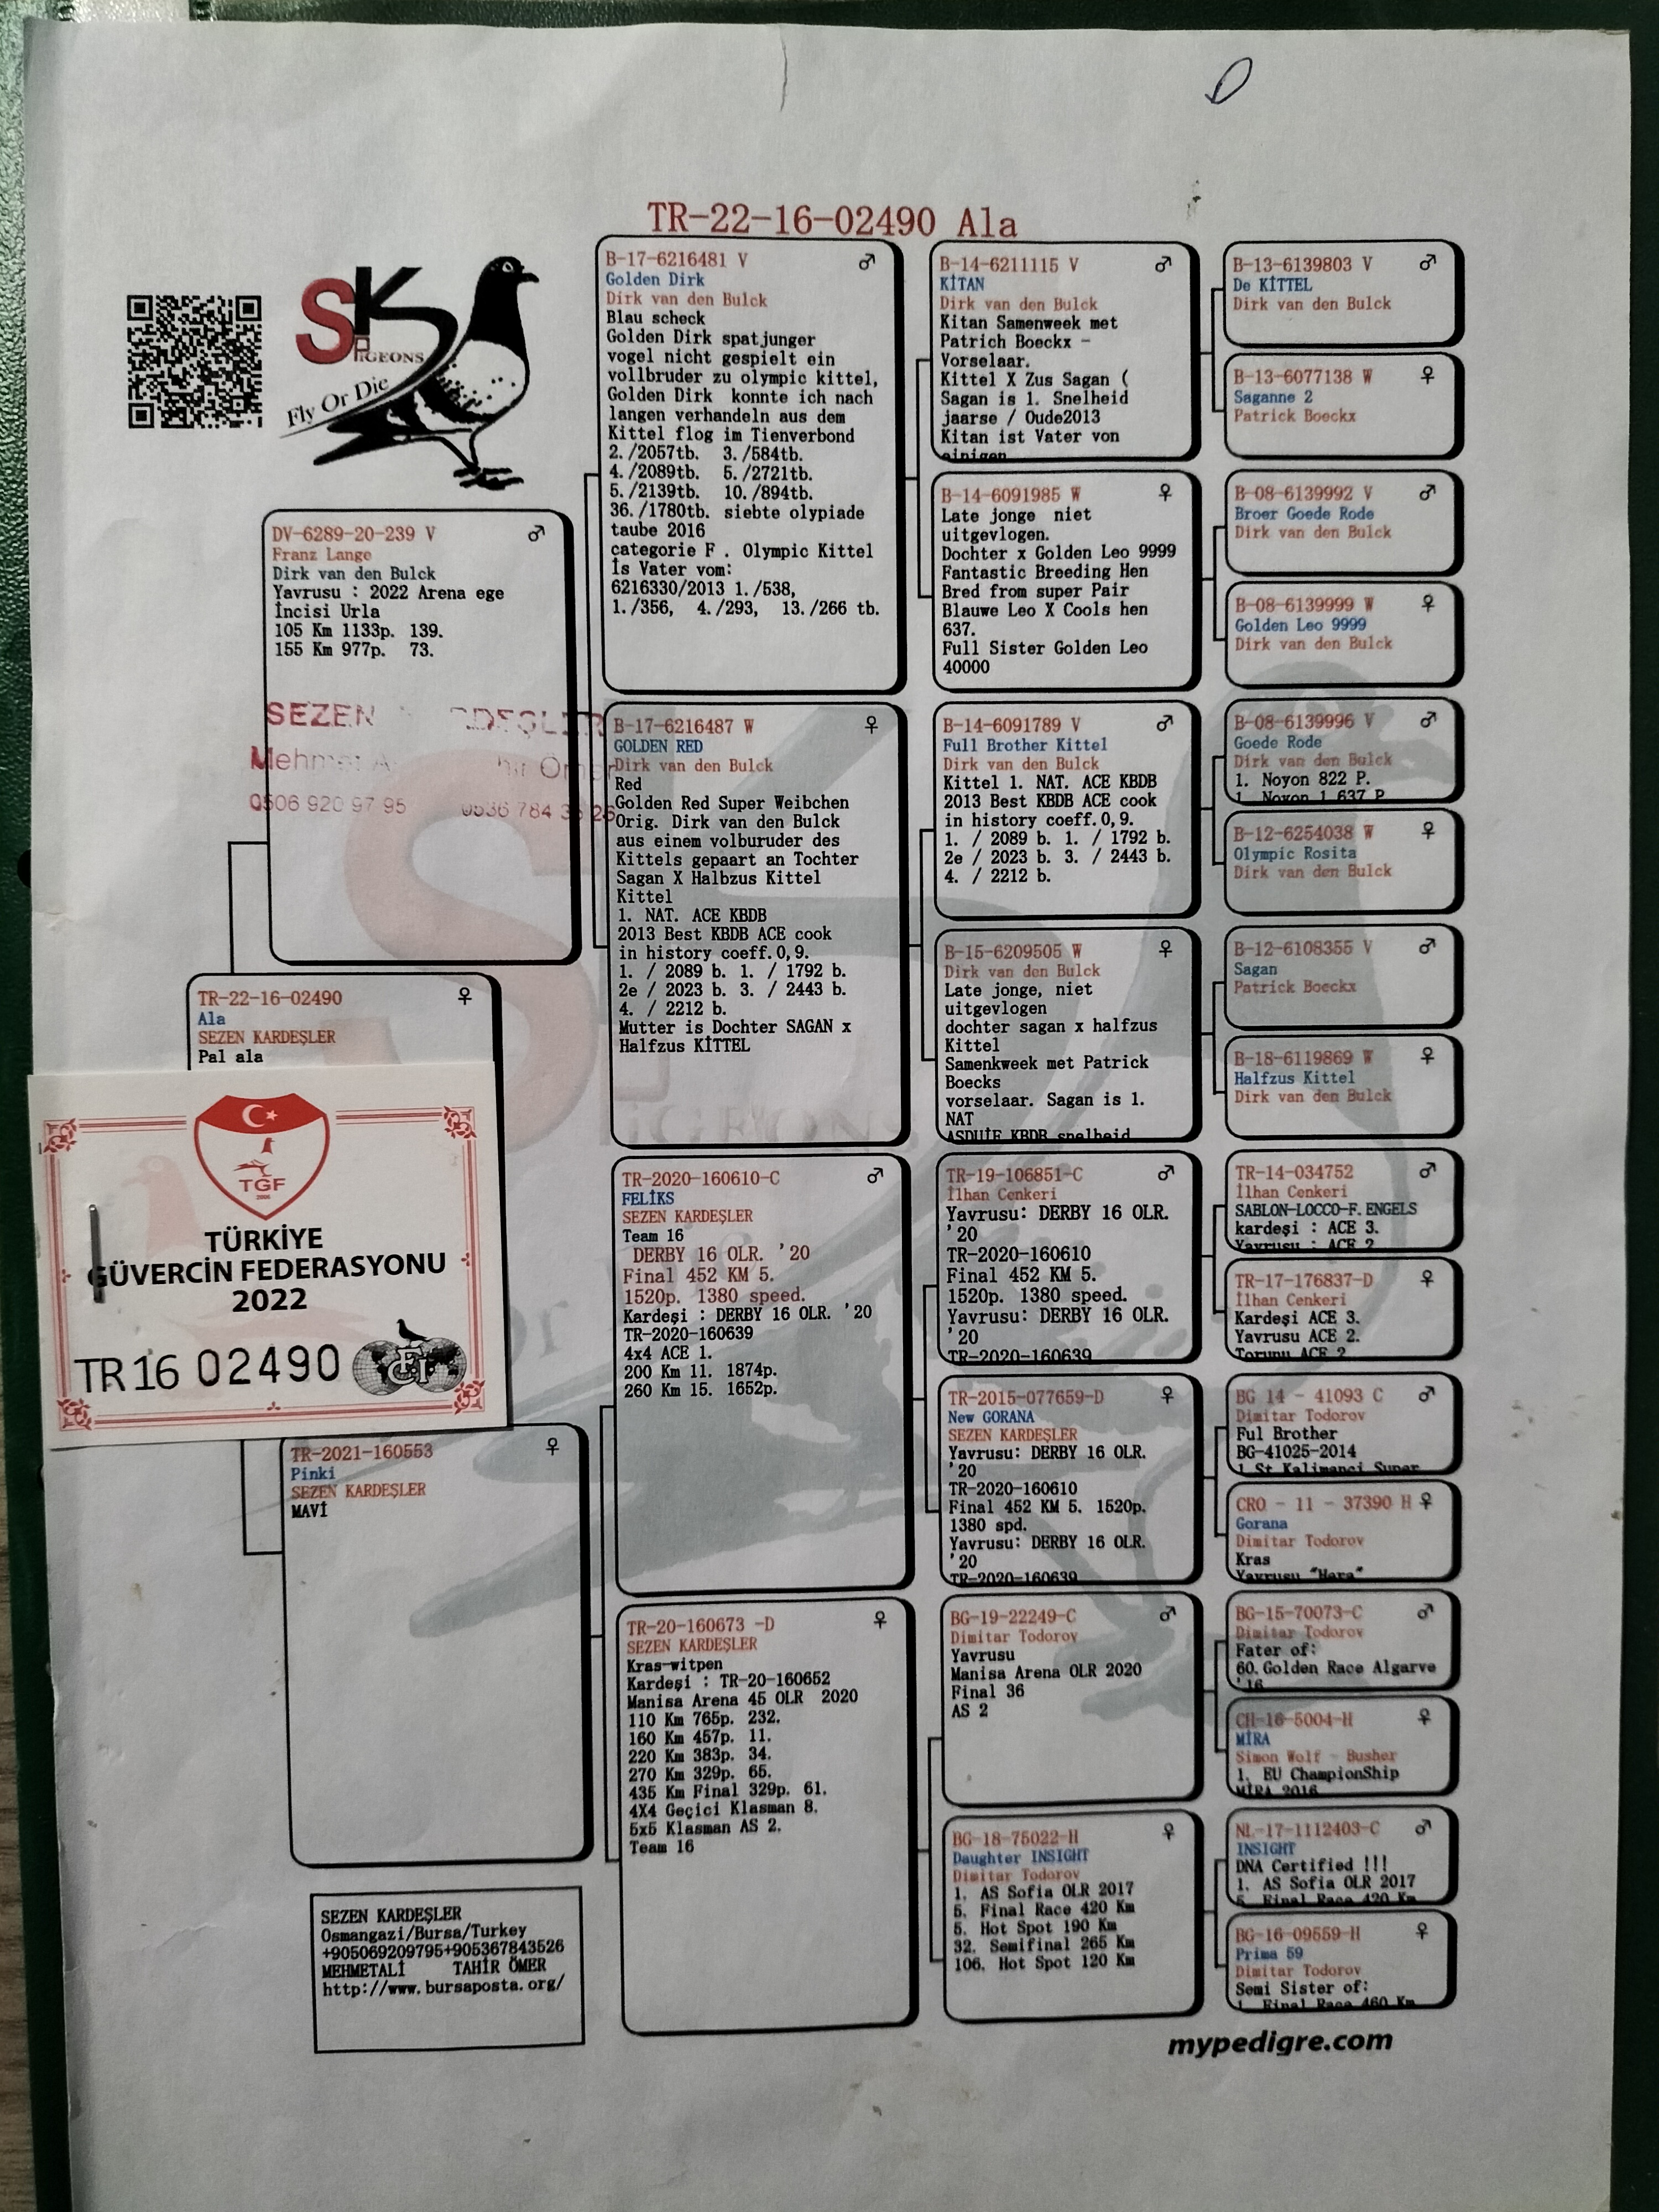 TR-22-16-02490 Ala
SK
PIGEONS
Fly Or Die
DV-6289-20-239 V
Franz Lange
Dirk van den Bulck
Yavrusu : 2022 Arena ege
İncisi Urla
105 Km 1133p. 139.
155 Km 977p. 73.
SEZEN
0506 920 97 95
TR-22-16-02490
Ala
SEZEN KARDEŞLER
Pal ala
TGF
TÜRKİYE
GÜVERCİN FEDERASYONU
2022
TR 16 02490
FCI
TR-2021-160553
Pinki
SEZEN KARDEŞLER
MAVİ
SEZEN KARDEŞLER
Osmangazi/Bursa/Turkey
+905069209795+905367843526
MEHMETALİ TAHİR ÖMER
http://www.bursaposta.org/
B-17-6216481 V
Golden Dirk
Dirk van den Bulck
Blau scheck
Golden Dirk spatjunger
vogel nicht gespielt ein
vollbruder zu olympic kittel,
Golden Dirk konnte ich nach
langen verhandeln aus dem
Kittel flog im Tienverbond
2./2057tb. 3./584tb.
4./2089tb. 5./2721tb.
5./2139tb. 10./894tb.
36./1780tb. siebte olypiade
taube 2016
categorie F . Olympic Kittel
İs Vater vom:
6216330/2013 1./538,
1./356, 4./293, 13./266 tb.
B-17-6216487 W
GOLDEN RED
Dirk van den Bulck
Red
Golden Red Super Weibchen
Orig. Dirk van den Bulck
aus einem volburuder des
Kittels gepaart an Tochter
Sagan X Halbzus Kittel
Kittel
1. NAT. ACE KBDB
2013 Best KBDB ACE cook
in history coeff.0,9.
1. / 2089 b. 1. / 1792 b.
2e / 2023 b. 3. / 2443 b.
4. / 2212 b.
Mutter is Dochter SAGAN x
Halfzus KİTTEL
TR-2020-160610-C
FELİKS
SEZEN KARDEŞLER
Team 16
DERBY 16 OLR. '20
Final 452 KM 5.
1520p. 1380 speed.
Kardeşi : DERBY 16 OLR. '20
TR-2020-160639
4x4 ACE 1.
200 Km 11. 1874p.
260 Km 15. 1652p.
TR-20-160673 -D
SEZEN KARDEŞLER
Kras-witpen
Kardeşi : TR-20-160652
Manisa Arena 45 OLR 2020
110 Km 765p. 232.
160 Km 457p. 11.
220 Km 383p. 34.
270 Km 329p. 65.
435 Km Final 329p. 61.
4X4 Geçici Klasman 8.
5x5 Klasman AS 2.
Team 16
B-14-6211115 V
KİTAN
Dirk van den Bulck
Kitan Samenweek met
Patrich Boeckx -
Vorselaar.
Kittel X Zus Sagan (
Sagan is 1. Snelheid
jaarse / Oude2013
Kitan ist Vater von
einigen
B-14-6091985 W
Late jonge niet
uitgevlogen.
Dochter x Golden Leo 9999
Fantastic Breeding Hen
Bred from super Pair
Blauwe Leo X Cools hen
637.
Full Sister Golden Leo
40000
B-14-6091789 V
Full Brother Kittel
Dirk van den Bulck
Kittel 1. NAT. ACE KBDB
2013 Best KBDB ACE cook
in history coeff.0,9.
1. / 2089 b. 1. / 1792 b.
2e / 2023 b. 3. / 2443 b.
4. / 2212 b.
B-15-6209505 W
Dirk van den Bulck
Late jonge, niet
uitgevlogen
dochter sagan x halfzus
Kittel
Samenkweek met Patrick
Boecks
vorselaar. Sagan is 1.
NAT
ASDUİF KBDB snelheid
TR-19-106851-C
İlhan Cenkeri
Yavrusu: DERBY 16 OLR.
'20
TR-2020-160610
Final 452 KM 5.
1520p. 1380 speed.
Yavrusu: DERBY 16 OLR.
'20
TR-2020-160639
TR-2015-077659-D
New GORANA
SEZEN KARDEŞLER
Yavrusu: DERBY 16 OLR.
'20
TR-2020-160610
Final 452 KM 5. 1520p.
1380 spd.
Yavrusu: DERBY 16 OLR.
'20
TR-2020-160639
BG-19-22249-C
Dimitar Todorov
Yavrusu
Manisa Arena OLR 2020
Final 36
AS 2
BG-18-75022-H
Daughter INSIGHT
Dimitar Todorov
1. AS Sofia OLR 2017
5. Final Race 420 Km
5. Hot Spot 190 Km
32. Semifinal 265 Km
106. Hot Spot 120 Km
B-13-6139803 V
De KİTTEL
Dirk van den Bulck
B-13-6077138 W
Saganne 2
Patrick Boeckx
B-08-6139992 V
Broer Goede Rode
Dirk van den Bulck
B-08-6139999 W
Golden Leo 9999
Dirk van den Bulck
B-08-6139996 V
Goede Rode
Dirk van den Bulck
1. Noyon 822 P.
1. Noyon 1.637 P
B-12-6254038 W
Olympic Rosita
Dirk van den Bulck
B-12-6108355 V
Sagan
Patrick Boeckx
B-18-6119869 W
Halfzus Kittel
Dirk van den Bulck
TR-14-034752
İlhan Cenkeri
SABLON-LOCCO-F.ENGELS
kardeşi : ACE 3.
Yavrusu : ACE 2
TR-17-176837-D
İlhan Cenkeri
Kardeşi ACE 3.
Yavrusu ACE 2.
Torunu ACE 2
BG 14 - 41093 C
Dimitar Todorov
Ful Brother
BG-41025-2014
1 St Kalimanci Super
CRO - 11 - 37390 H
Gorana
Dimitar Todorov
Kras
Yavrusu "Hara"
BG-15-70073-C
Dimitar Todorov
Fater of:
60.Golden Race Algarve
'16
CH-16-5004-H
MİRA
Simon Wolf - Busher
1. EU ChampionShip
MİRA 2016
NL-17-1112403-C
INSIGHT
DNA Certified !!!
1. AS Sofia OLR 2017
5. Final Race 420 Km
BG-16-09559-H
Prima 59
Dimitar Todorov
Semi Sister of:
1. Final Race 460 Km
mypedigre.com